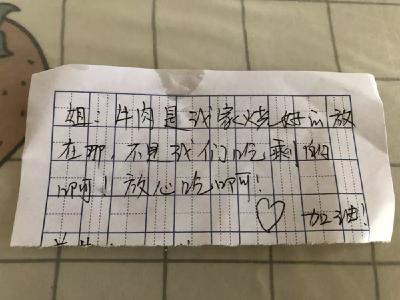 姐：牛肉是我家烧好后放
在那，不是我们吃剩的
啊！放心吃啊！
加油！